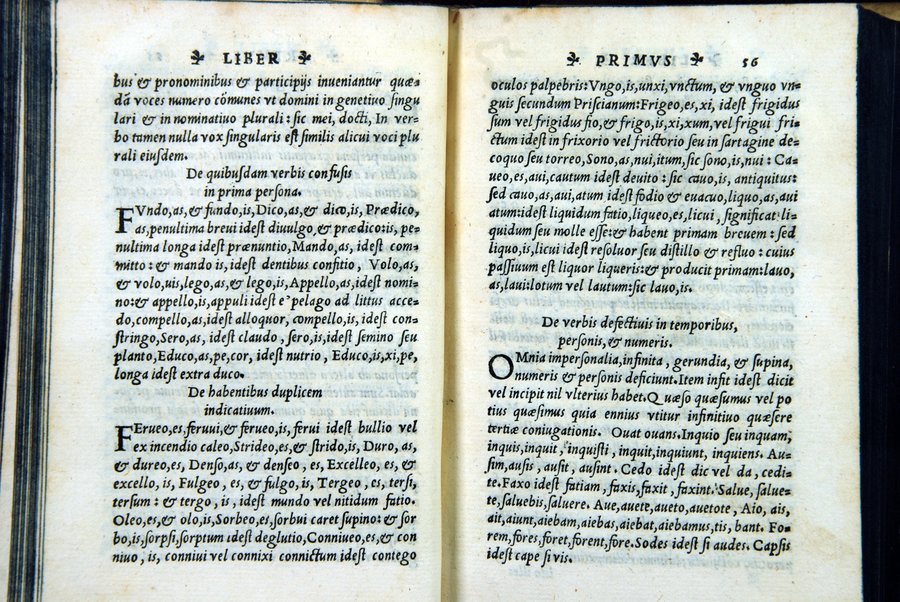 LIBER
bus & pronominibus & participijs inueniantur quæ-
dā voces numero cōmunes vt domini in genetiuo singu
lari & in nominatiuo plurali: sic mei, docti, In ver-
bo tamen nulla vox singularis est similis alicui voci plu
rali eiusdem.
De quibusdam verbis confusis
in prima persona.
FVndo,as,& fundo,is, Dico,as,& dico,is, Prædico,
as,penultima breui idest diuulgo,& prædico:is, pe-
nultima longa idest prænuntio, Mando,as, idest com-
mitto: & mando is, idest dentibus confitio, Volo,as,
& volo,uis,lego,as,& lego,is, Appello,as, idest nomi-
no:& appello,is,appuli idest e' pelago ad littus acce-
do,compello,as,idest alloquor, compello,is, idest con-
stringo,Sero,as, idest claudo, sero,is,idest semino seu
planto,Educo,as,pe,cor, idest nutrio, Educo,is,xi,pe,
longa idest extra duco.
De habentibus duplicem
indicatiuum.
FErueo,es,ferui,& ferueo,is, ferui idest bullio vel
ex incendio caleo,Strideo,es,& strido,is, Duro,as,
& dureo,es, Denso,as,& denseo, es, Excelleo, es, &
excello, is, Fulgeo, es, & fulgo,is, Tergeo, es, tersi,
tersum: & tergo, is, idest mundo vel nitidum fatio.
Oleo,es,& olo,is,Sorbeo,es,sorbui caret supino: & sor
bo,is,sorpsi,sorptum idest deglutio,Conniueo,es,& con
niuo, is, conniui vel connixi connictum idest contego
PRIMVS 56
oculos palpebris:Vngo,is,unxi,vnctum, & vnguo vn-
guis secundum Priscianum:Frigeo,es,xi, idest frigidus
sum vel frigidus fio,& frigo,is,xi,xum,vel frigui fri-
ctum idest in frixorio vel frictorio seu in sartagine de-
coquo seu torreo,Sono,as,nui,itum,sic sono,is,nui: Ca-
ueo,es,aui,cautum idest deuito: sic cauo,is, antiquitus:
sed cauo,as,aui,atum idest fodio & euacuo,liquo,as,aui
atum:idest liquidum fatio,liqueo,es,licui, significat li-
quidum seu molle esse:& habent primam breuem: sed
liquo,is,licui idest resoluor seu distillo & refluo: cuius
passiuum est liquor liqueris:& producit primam:lauo,
as,laui:lotum vel lautum:sic lauo,is.
De verbis defectiuis in temporibus,
personis, & numeris.
OMnia impersonalia,infinita, gerundia, & supina,
numeris & personis deficiunt.Item infit idest dicit
vel incipit nil vlterius habet.Quæso quæsumus vel po
tius quæsimus quia ennius vtitur infinitiuo quæsere
tertiæ coniugationis. Ouat ouans.Inquio seu inquam,
inquis,inquit, inquisti, inquit,inquiunt, inquiens. Au-
sim,ausis, ausit, ausint. Cedo idest dic vel da, cedi-
te.Faxo idest fatiam, faxis,faxit, faxint. Salue, salue-
te,saluebis,saluere. Aue,auete,aueto,auetote, Aio, ais,
ait,aiunt,aiebam,aiebas,aiebat,aiebamus,tis, bant. Fo-
rem,fores,foret,forent,fore. Sodes idest si audes. Capsis
idest cape si vis.